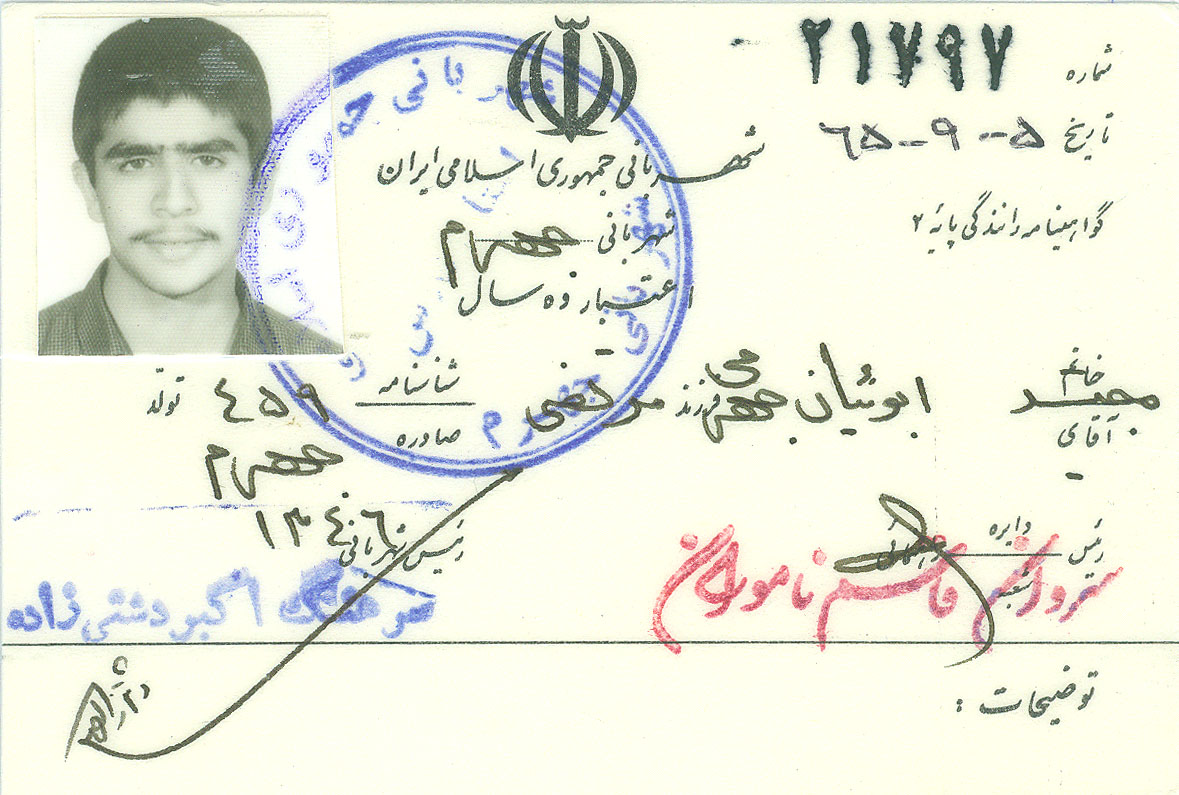 شماره ۲۱۷۹۷
تاریخ ۵-۹-۶۵
شهربانی جمهوری اسلامی ایران
گواهینامه رانندگی پایهٔ ۲
شهربانی جهرم
اعتبار ده سال
خانم
آقای
مجید ابوئیان جهرمی فرزند مرتضی
شناسنامه ۴۵۹ تولد
صادره جهرم
۱۳۴۰۶
رئیس دایره راهنمائی
شعبه
رئیس شهربانی
سروان قاسم ناموران
سرهنگ اکبر دشتی زاده
توضیحات :
شهربانی جمهوری
شهربانی جهرم